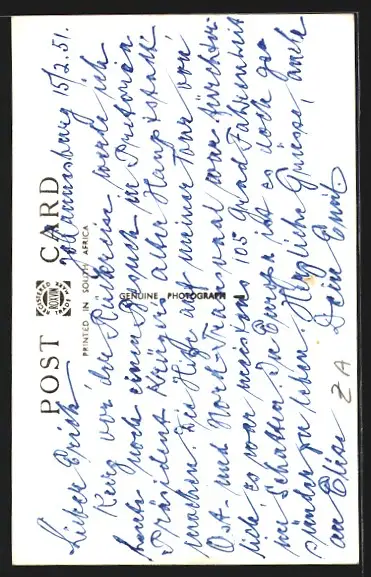 POST CARD
PRINTED IN SOUTH AFRICA
GENUINE PHOTOGRAPH
Johannesburg 15/2.51.
Lieber Erich!
Kurz vor der Rückreise werde ich
heute noch einen Besuch in Pretoria
Präsident Krügers alter Hauptstadt
machen. Die Hitze auf meiner Tour von
Ost- und Nord-Transvaal war fürchter-
lich, es war meistens 105 Grad Fahrenheit
im Schatten. In Europa ist es doch ge-
sünder zu leben. Herzliche Grüsse, auch
an Elise Dein Emil
ZA